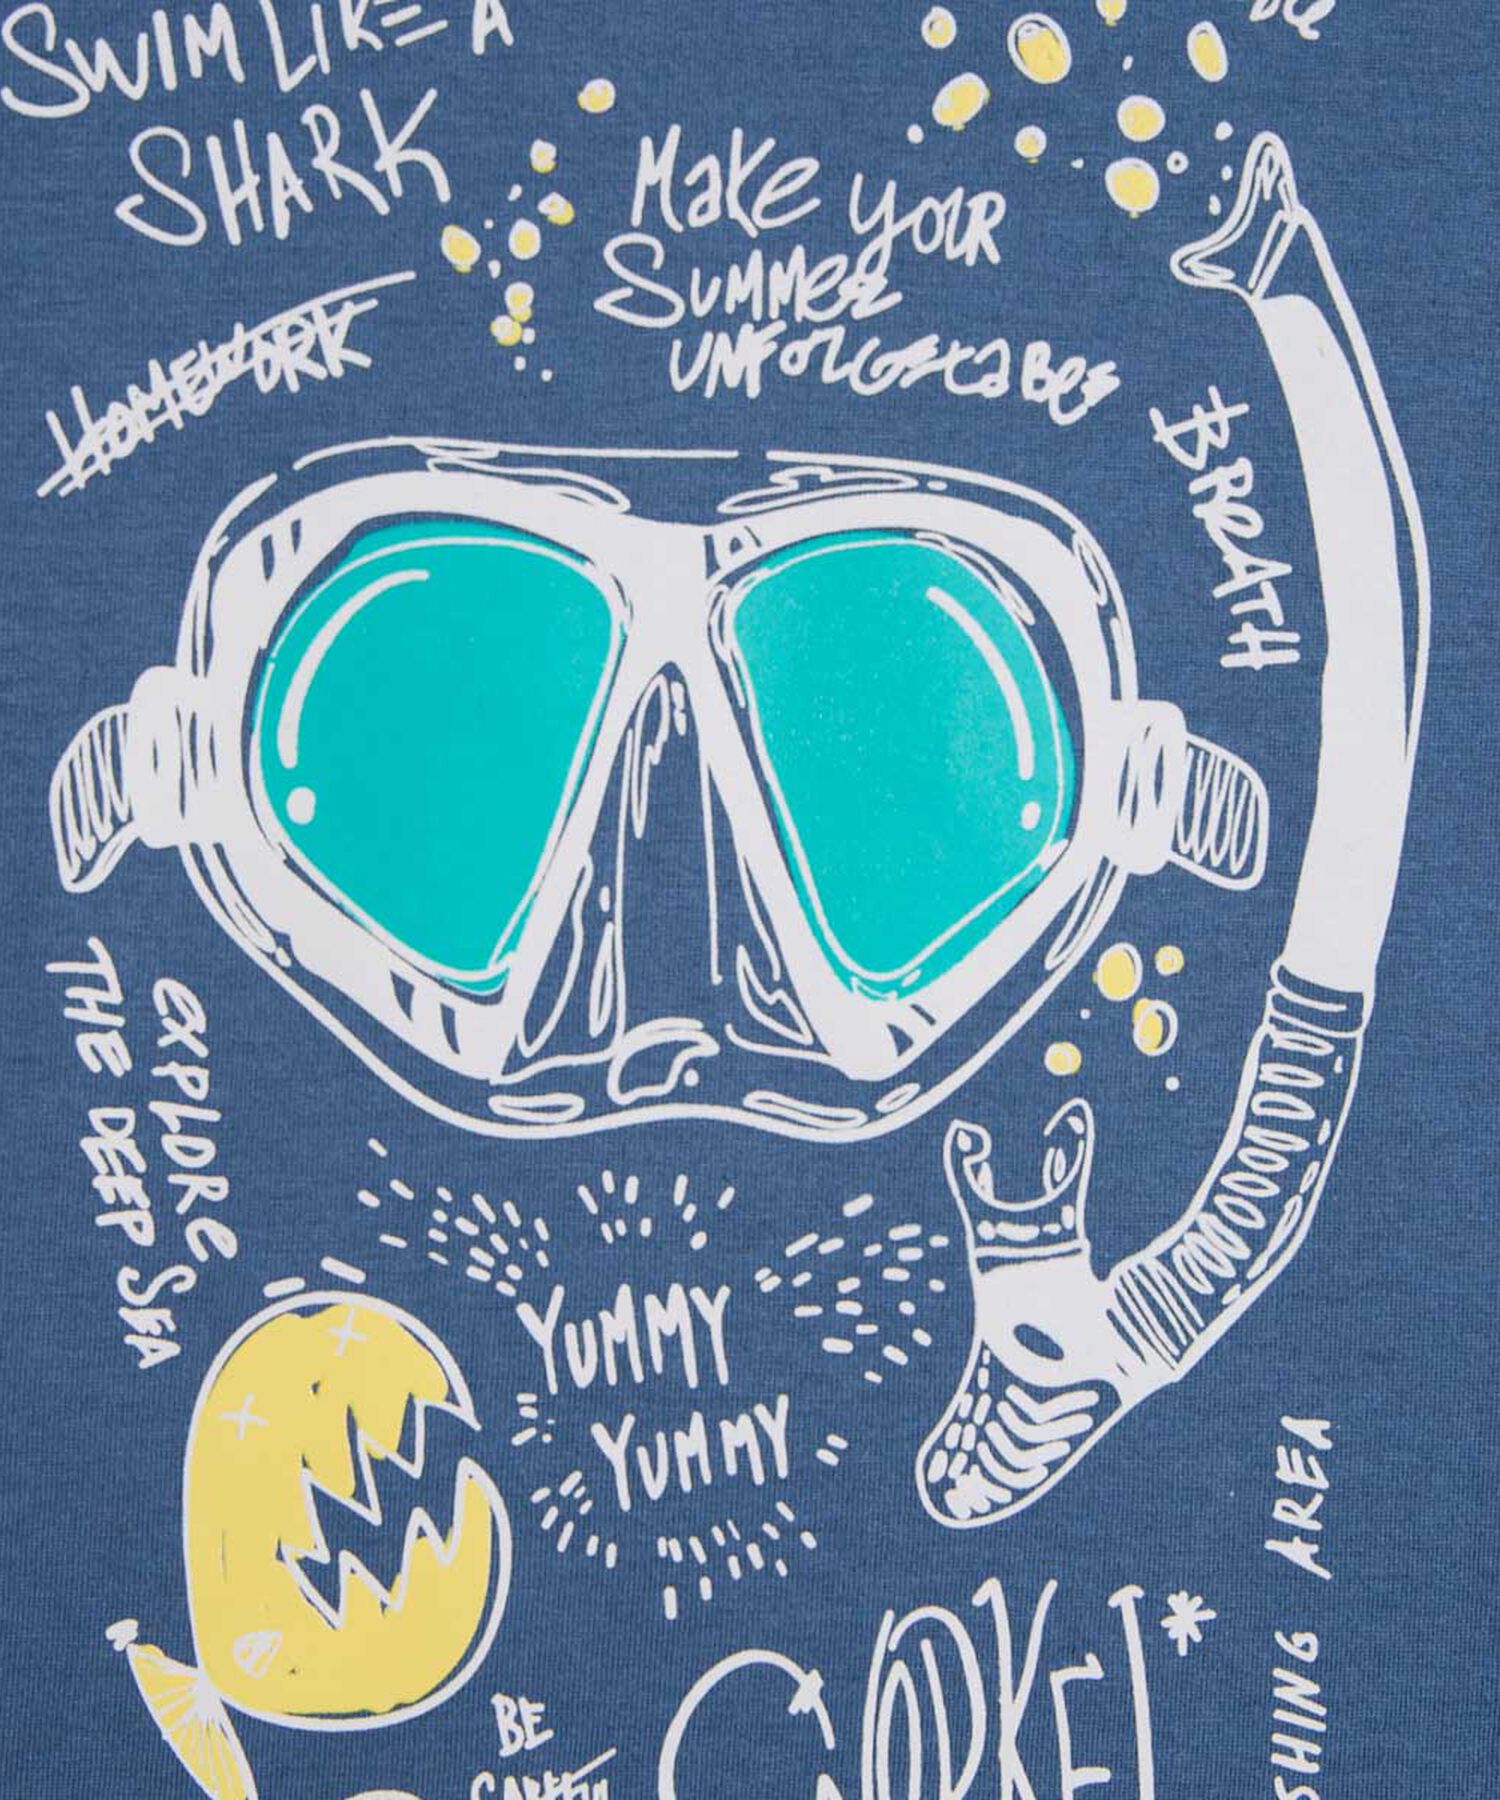 SWIM LIKE A
SHARK
Make your
Summer
UNFORGETABLE
HOMEWORK
BREATH
EXPLORE
THE DEEP SEA
YUMMY
YUMMY
AREA
BE